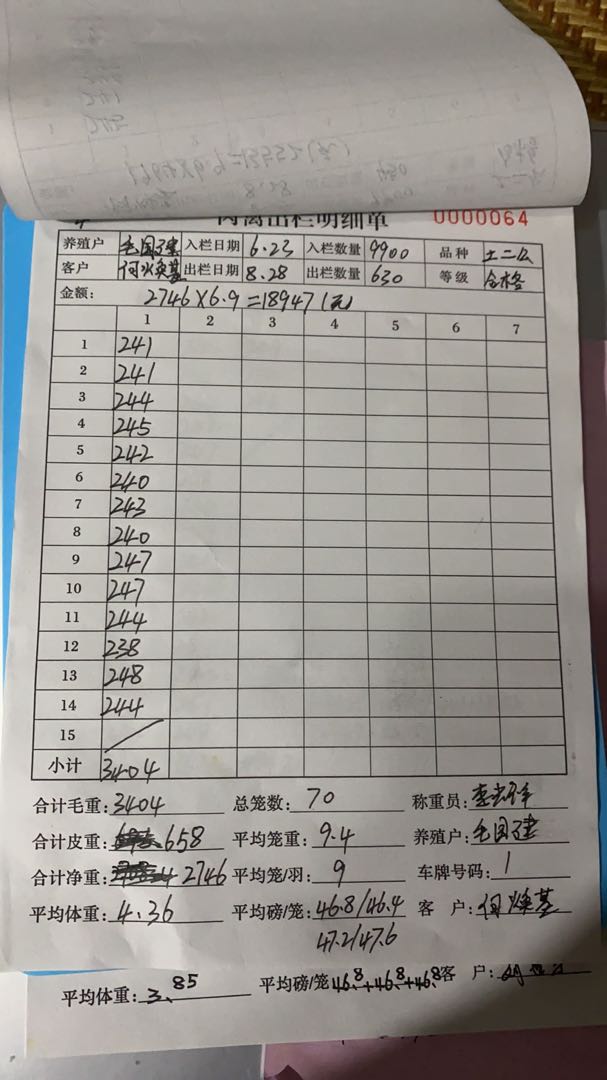 肉禽出栏明细单 0000064
养殖户 毛国建 入栏日期 6.23 入栏数量 9900 品种 土二公
客户 何焕基 出栏日期 8.28 出栏数量 630 等级 合格
金额: 2746×6.9=18947(元)
1 2 3 4 5 6 7
1 241
2 241
3 244
4 245
5 242
6 240
7 243
8 240
9 247
10 247
11 244
12 238
13 248
14 244
15
小计 3404
合计毛重: 3404 总笼数: 70 称重员:
合计皮重: 658 平均笼重: 9.4 养殖户: 毛国建
合计净重: 2746 平均笼/羽: 9 车牌号码: 1
平均体重: 4.36 平均磅/笼: 46.8/46.4 客 户: 何焕基
47.2/47.6
平均体重: 3.85 平均磅/笼 46.8+46.8+46.8 客 户: